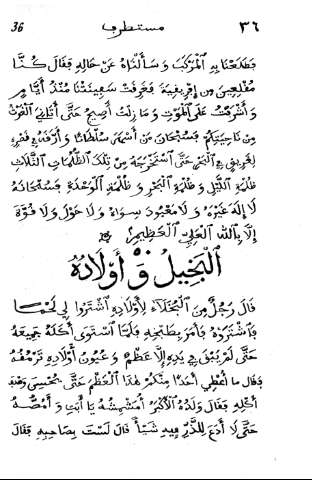 ٣٦ مستطرف 36
فطلعنا به المركب و سألناه عن حاله فقال كنّا
مقلعين من إفريقية فغرقت سفينتنا منذ أيّام
و أشرفت على الموت و ما زلت أصيح حتّى أتاني الغوث
من ناحيتكم فسبحان من أسهر سلطانا و أرقه في قصره
لغريق في البحر حتّى استخرجه من تلك الظلمات الثلاث
ظلمة الليل و ظلمة البحر و ظلمة الوحدة فسبحانه
لا إله غيره و لا معبود سواه و لا حول و لا قوّة
إلّا بالله العليّ العظيم
البخيل و أولاده
قال رجل من البخلاء لأولاده اشتروا لي لحما
فاشتروه فأمر بطبخه فلمّا استوى أكله جميعه
حتّى لم يبق في يده إلّا عظم و عيون أولاده ترمقه
فقال ما أعطي أحدا منكم هذا العظم حتّى يحسن وصف
أكله فقال ولده الأكبر أمشمشه يا أبت و أمصّه
حتّى لا أدع للذّرّ فيه شيأ قال لست بصاحبه فقال